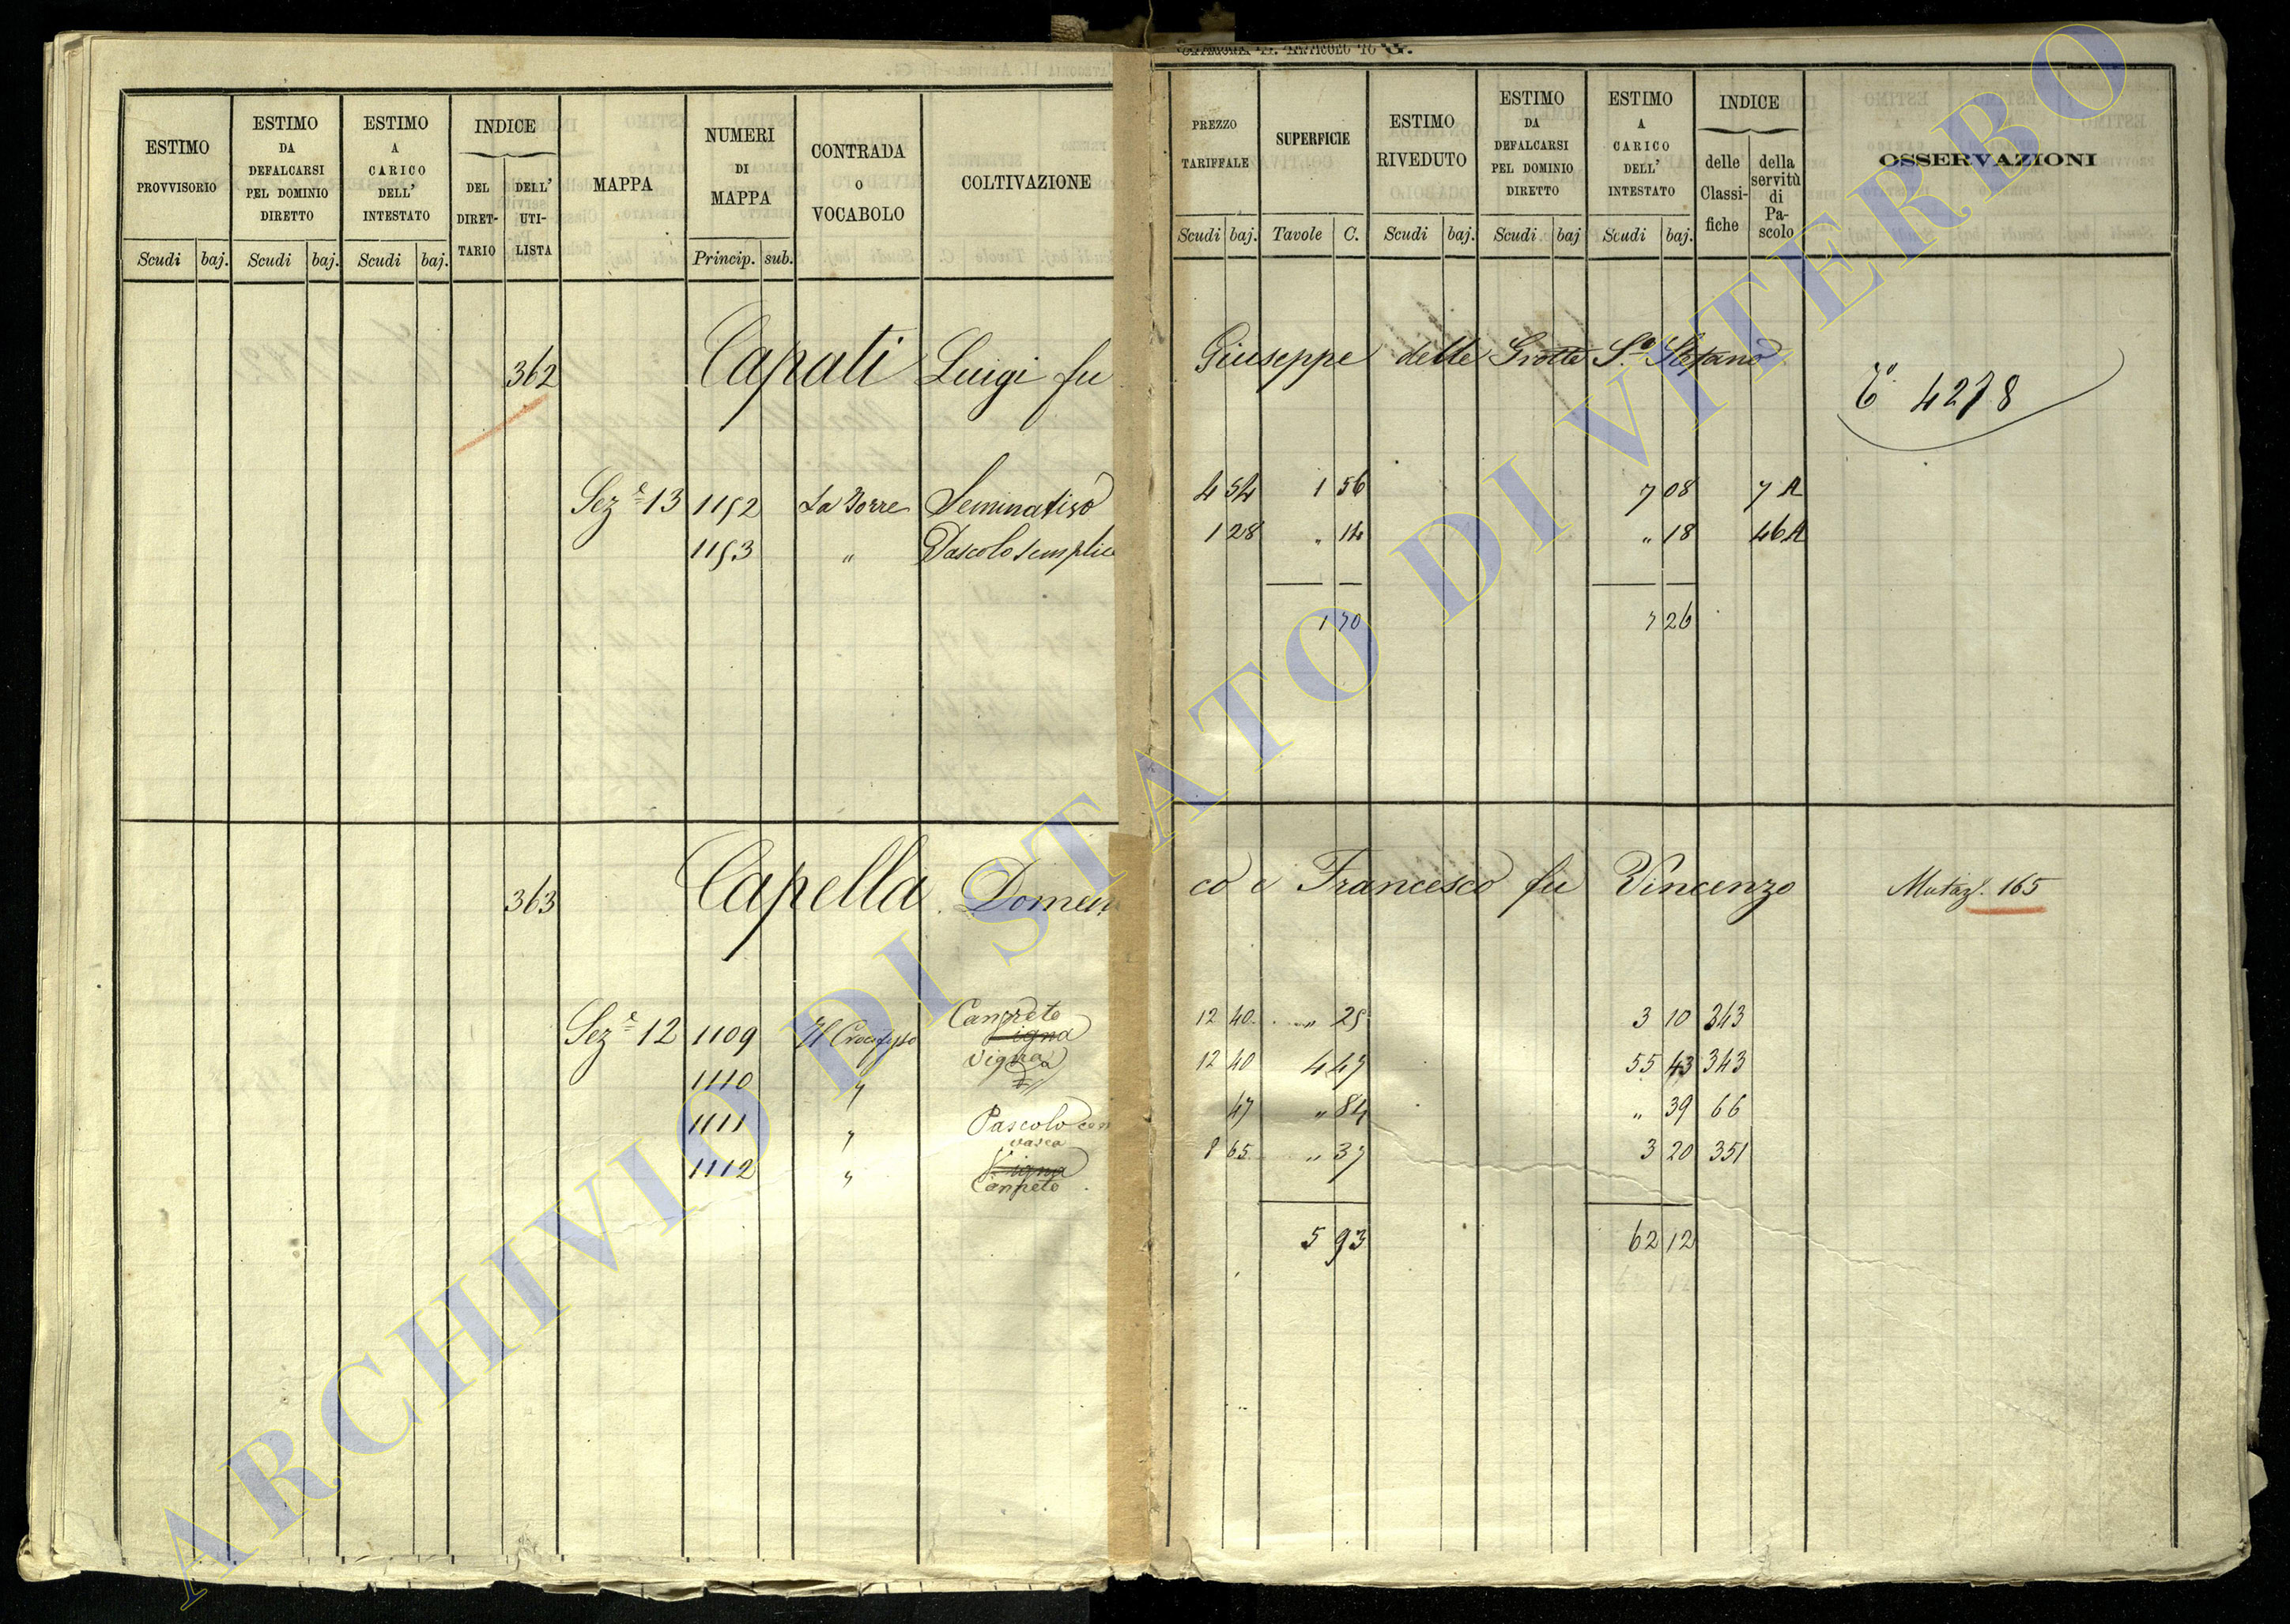 CATEGORIA II. ARTICOLO 16 G.
ESTIMO PROVVISORIO
ESTIMO DA DEFALCARSI PEL DOMINIO DIRETTO
ESTIMO A CARICO DELL' INTESTATO
INDICE
DEL DIRET-TARIO
DELL' UTI-LISTA
MAPPA
NUMERI DI MAPPA
CONTRADA O VOCABOLO
COLTIVAZIONE
Scudi baj. Scudi baj. Scudi baj. Princip. sub.
PREZZO TARIFFALE
SUPERFICIE
ESTIMO RIVEDUTO
ESTIMO DA DEFALCARSI PEL DOMINIO DIRETTO
ESTIMO A CARICO DELL' INTESTATO
INDICE
delle Classi-fiche
della servitù di Pa-scolo
OSSERVAZIONI
Scudi baj. Tavole C. Scudi baj. Scudi baj Scudi baj.
362 Capati Luigi fu Giuseppe delle Grotte S.o Stefano
4278
Sez.e 13 1152 La Torre Seminativo 4 54 1 56 7 08 7 A
1153 " Pascolo semplice 1 28 " 14 " 18 46 A
1 70 7 26
363 Capella Domenico e Francesco fu Vincenzo Mutaz. 165
Canneto
Sez.e 12 1109 Il Crocifisso Vigna 12 40 " 25 3 10 343
1110 " Vigna 12 40 4 47 55 43 343
1111 " Pascolo con vasca 47 " 84 " 39 66
1112 " Vigna 8 65 " 37 3 20 351
Canneto
5 93 62 12
ARCHIVIO DI STATO DI VITERBO